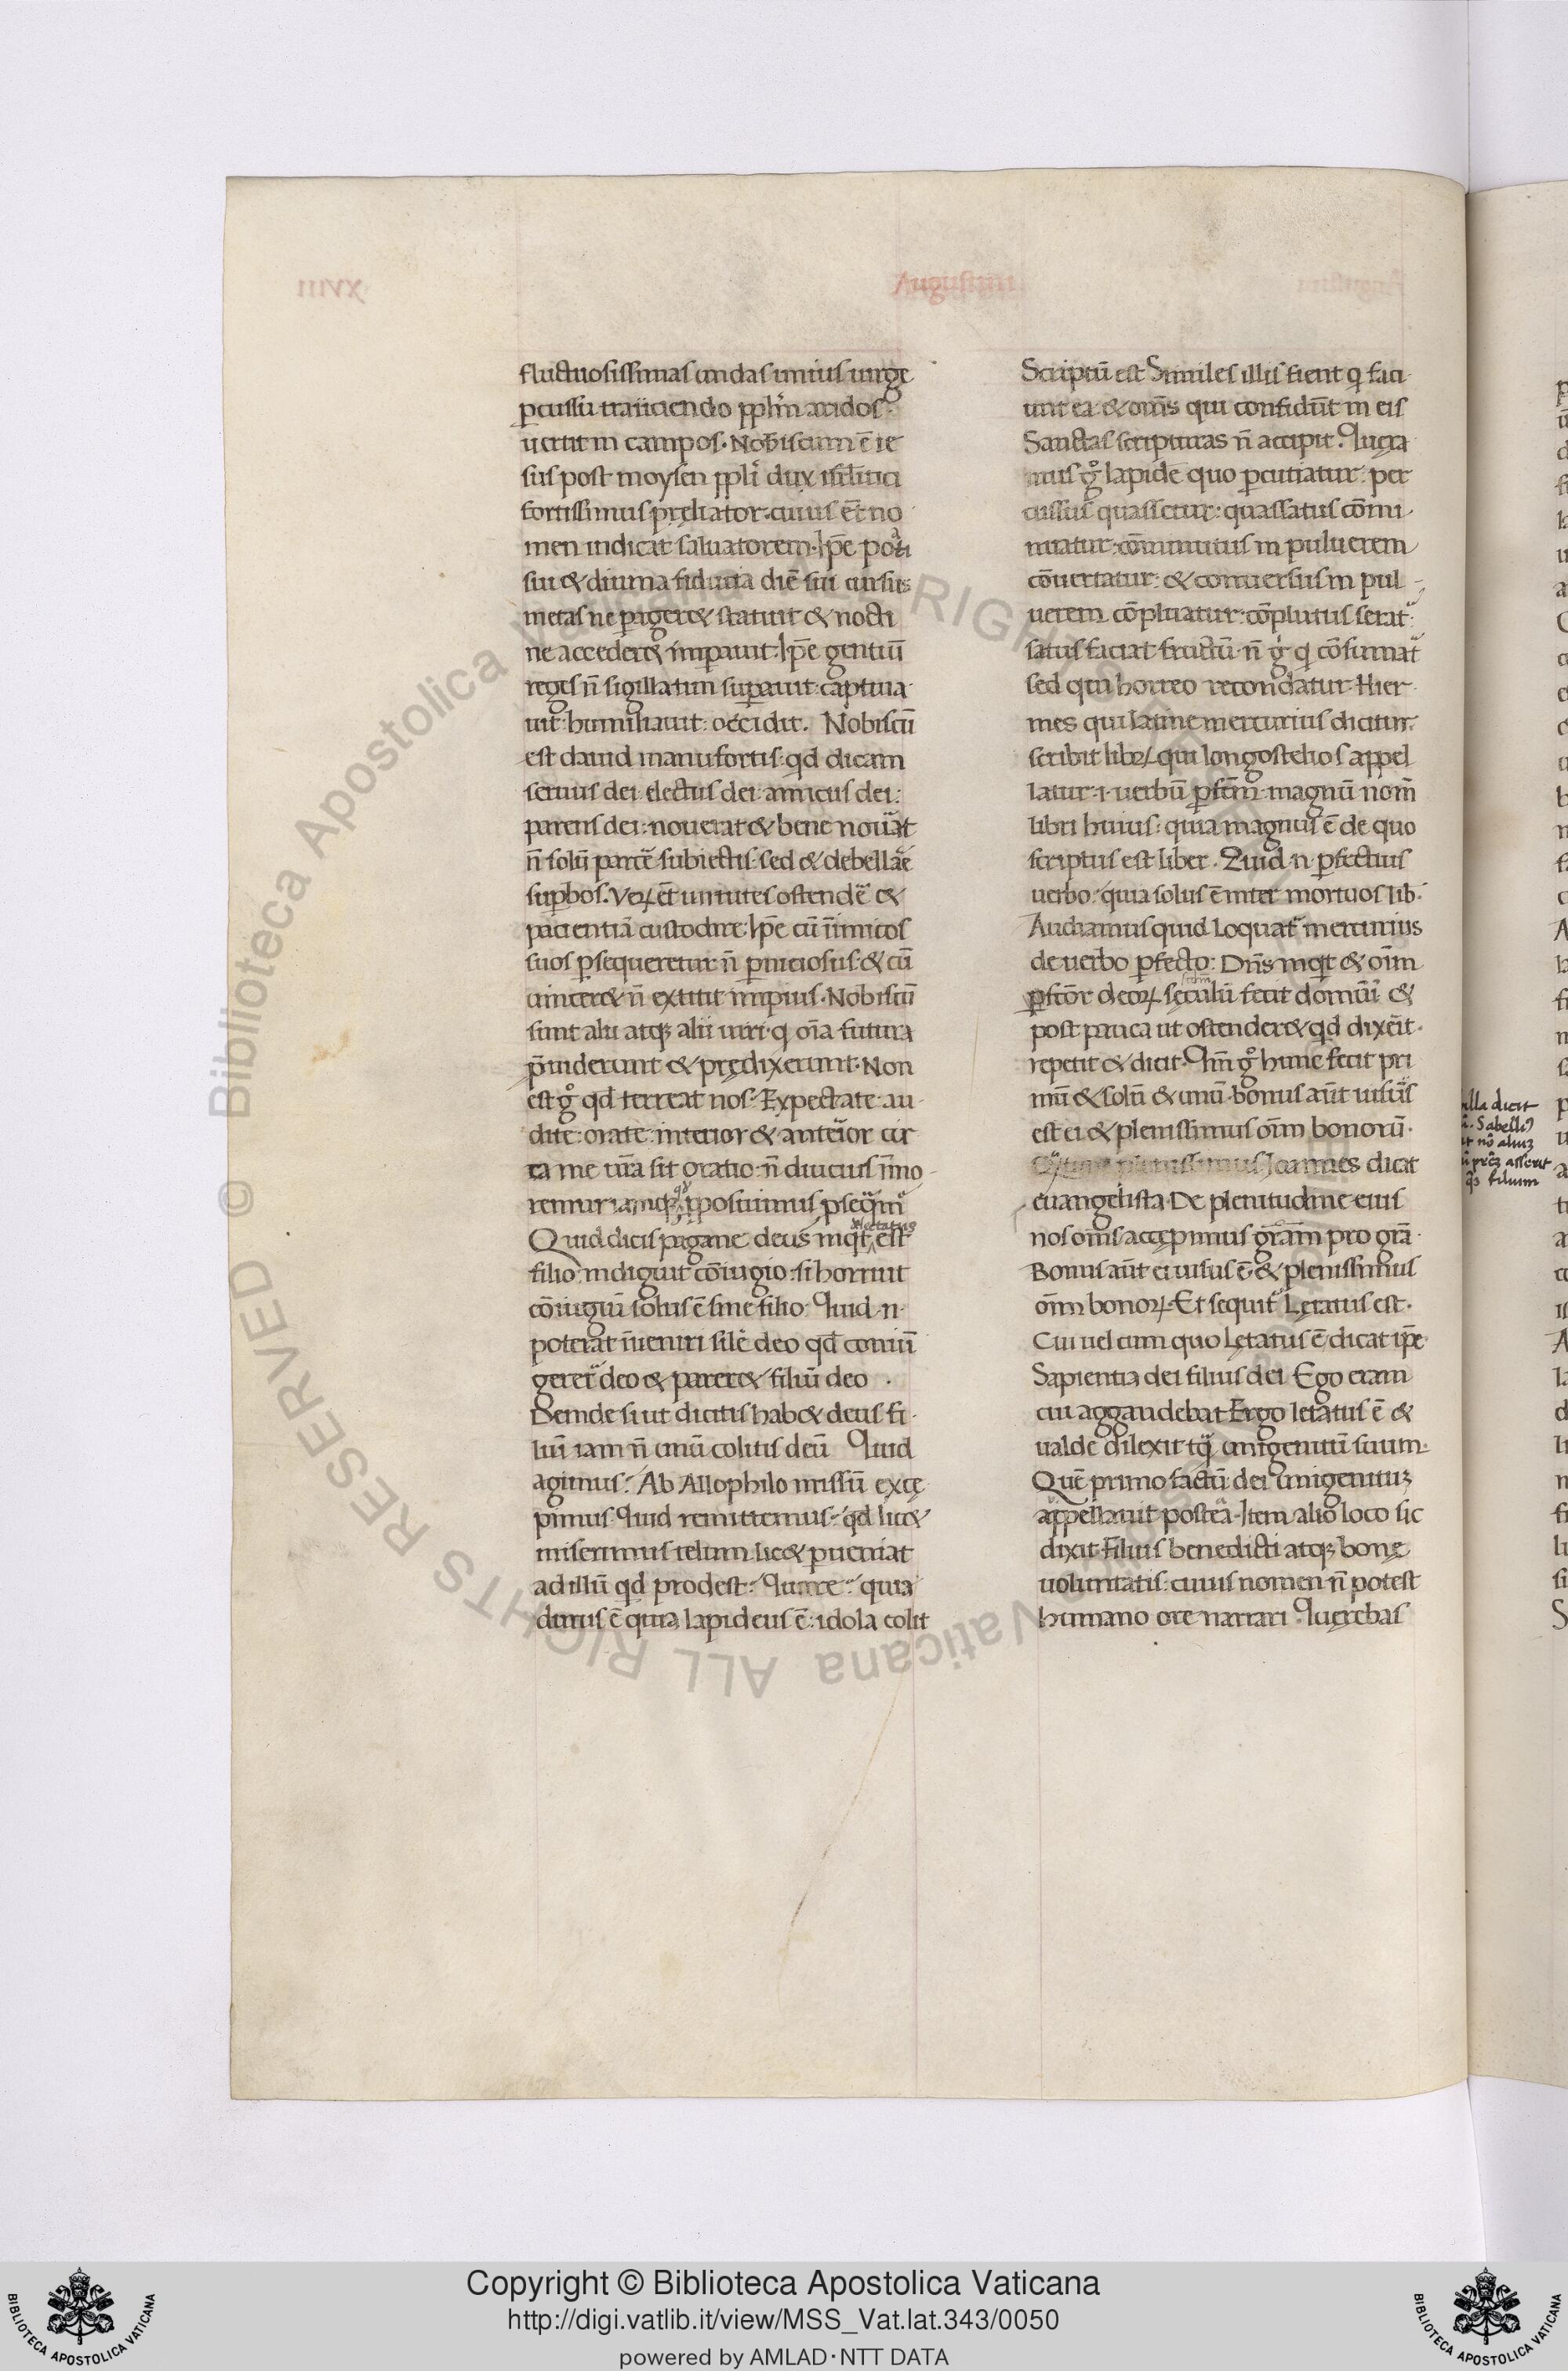 Augustini
fluctuosissimas undas unius uirgę
ꝑcussu traiiciendo ppłm aridos
uertit in campos. Nobiscum ē ie
sus post moysen ppłi dux isrłitici
fortissimus pręliator. cuius et̄ no
men indicat saluatorem. Ip̄e
sui & diuina fiducia diē sui cursus
metas ne ꝑager& statuit & nocti
ne acceder& imꝑauit. Ip̄e gentiū
reges n̄ sigillatim suꝑauit: captiua
uit: humiliauit: occidit. Nobiscū
est dauid manu fortis: qd dicam
seruus dei. electus dei. amicus dei:
parens dei: nouerat & bene nouāt
n̄ solū parcē subiectis: sed & debellāe
suꝑbos. Veꝝ et̄ uirtutes ostendē &
pacientiā custodire: Ip̄e cū inīmicos
suos ꝑsequeretur n̄ ꝑniciosus: & cū
uincer& n̄ extitit impius. Nobiscū
sunt alii atqꝫ alii uiri. q oīa futura
p̄uiderunt & prędixerunt. Non
est gº qd terreat nos. Expectate: au
dite: orate: interior & anterior cir
ca me ur̄a sit oratio: n̄ diucius īmo
remur iamqꝫ qº ꝓposuimus ꝑseqm̄
Quid dicis pagane deus inqt delectatus est
filio indiguit cōiugio: si horruit
cōiugiū solus ē sine filio: Quid .n.
poterat inueniri silē deo qd coniūi
gerer̄ deo & parer& filiū deo .
Deinde si ut dicitis hab& deus fi
liū iam n̄ unū colitis deū Quid
agimus? Ab Allophilo missū excę
pimus Quid remittemus? qd lic&
miserimus telum lic& ꝑueniat
ad illū qd prodest? Quare? quia
durus ē quia lapideus ē: idola colit
Scriptū est Similes illis fient q faci
unt ea: & om̄s qui confidūt in eis
Sanctas scripturas n̄ accipit. Quęra
mus gº lapidē quo ꝑcutiatur: per
cussus quassetur: quassatus cōmi
nuatur: cōminutus in puluerem
cōuertatur: & conuersus in pul
uerem cōpluatur: cōplutus serat̄
satus faciat fructū: n̄ gº q cōsumat̄
sed qui horreo recondatur. Hier
mes qui latine mercurius dicitur
scribit libꝝ. qui longostelios appel
latur .i. uerbū ꝑfc̄m. magnū nom̄
libri huius: quia magnus ē de quo
scriptus est liber. Quid .n. ꝑfectius
uerbo: quia solus ē inter mortuos lib
Audiamus quid loquat̄ mercurius
de uerbo ꝑfecto: Dn̄s inqt & oīm
ꝑfcōr deoꝝ sęculū fecit domīū &
post pauca ut ostender& qd dixeīt.
repetit & dicit. Qm̄ gº hunc fecit pri
mū & solū & unū. bonus aūt uisus
est ei & plenissimus oīm bonorū.
plenissimus Ioannes dicat
euangelista. De plenitudine eius
nos om̄s accępimus gr̄am pro gr̄a.
Bonus aūt ei uisus ē & plenissimus
oīm bonoꝝ. Et sequit̄ Lętatus est.
Cui uel cum quo Lętatus ē dicat ip̄e
Sapientia dei filius dei Ego eram
cui aggaudebat Ergo letatus ē &
ualde dilexit tq̄ unigenitū suum.
Quē primo factū dei unigenitūꝫ
appellauit posteā. Item alio loco sic
dixit Filius benedicti atqꝫ bonę
uoluntatis: cuius nomen n̄ potest
humano ore narrari. Quęrebas
illa dicit
Sabelliꝰ
nō aliuꝫ
asserit
filium
Copyright © Biblioteca Apostolica Vaticana
http://digi.vatlib.it/view/MSS_Vat.lat.343/0050
powered by AMLAD·NTT DATA
BIBLIOTECA APOSTOLICA VATICANA
BIBLIOTECA APOSTOLICA VATICANA
© Biblioteca Apostolica Vaticana ALL RIGHTS RESERVED